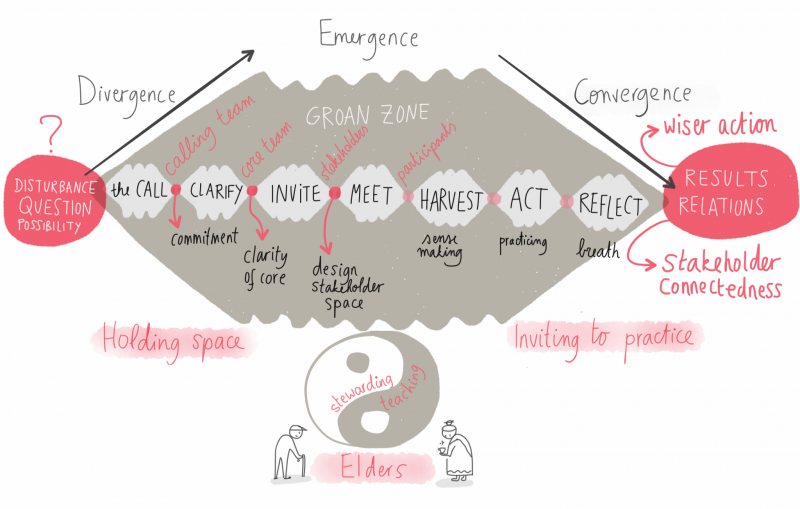 Emergence
Divergence
Convergence
GROAN ZONE
?
calling team
core team
stakeholders
participants
wiser action
DISTURBANCE
QUESTION
POSSIBILITY
the CALL
CLARIFY
INVITE
MEET
HARVEST
ACT
REFLECT
RESULTS
RELATIONS
commitment
clarity
of core
design
stakeholder
space
sense
making
practicing
breath
stakeholder
connectedness
Holding space
Inviting to practice
stewarding
teaching
Elders